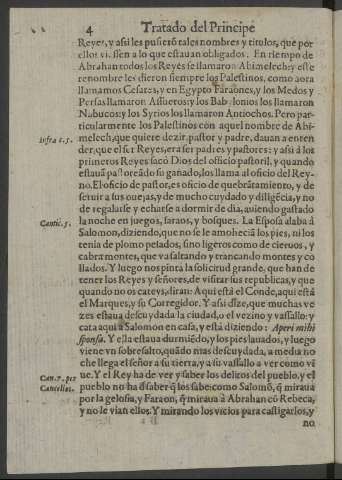 4 Tratado del Principe
Reyes, y assi les pusierõ tales nombres y titulos, que por
ellos viessen a lo que estauan obligados. En tiempo de
Abrahan todos los Reyes se llamarõ Abimelech: y este
renombre les dieron siempre los Palestinos, como aora
llamamos Cesares, y en Egypto Faraones, y los Medos y
Persas llamaron Assueros: y los Babilonios los llamaron
Nabucos: y los Syrios los llamaron Antiochos. Pero par-
ticularmente los Palestinos con aquel nombre de Abi-
Infra c.5. melech, que quiere dezir, pastor y padre, dauan a enten
der, que el ser Reyes, era ser padres y pastores: y assi â los
primeros Reyes sacó Dios del officio pastoril, y quando
estauã pastoreãdo su ganado, los llama al oficio del Rey-
no. El oficio de pastor, es oficio de quebrãtamiento, y de
seruir a sus ouejas, y de mucho cuydado y diligẽcia, y no
de regalarse y echarse a dormir de dia, auiendo gastado
Cantic. 5. la noche en juegos, saraos, y bosques. La Esposa alaba â
Salomon, diziendo, que no se le amohecia los pies, ni los
tenia de plomo pesados, sino ligeros como de cieruos, y
cabra montes, que va saltando y trancando montes y co
llados. Y luego nos pinta la solicitud grande, que han de
tener los Reyes y señores, de visitar sus republicas, y que
quando no os cateys, diran: Aqui està el Conde, aqui està
el Marques, y su Corregidor. Y assi dize, que muchas ve
zes estaua descuydada la ciudad, o el vezino y vassallo: y
cata aqui â Salomon en casa, y està diziendo: Aperi mihi
sponsa. Y ella estaua durmiẽdo, y los pies lauados, y luego
viene vn sobresalto, quãdo mas descuydada, a media no
che llega el señor a su tierra, y a su vassallo a ver como vi
Can. 7. per ue. Y el Rey ha de ver y saber los delitos del pueblo, y el
Cancellos. pueblo no ha d̃ saber q̃ los sabe: como Salomõ, q̃ miraua
por la gelosia, y Faraon, q̃ miraua à Abrahan cõ Rebeca,
y no le vian ellos. Y mirando los vicios para castigarlos, y
no